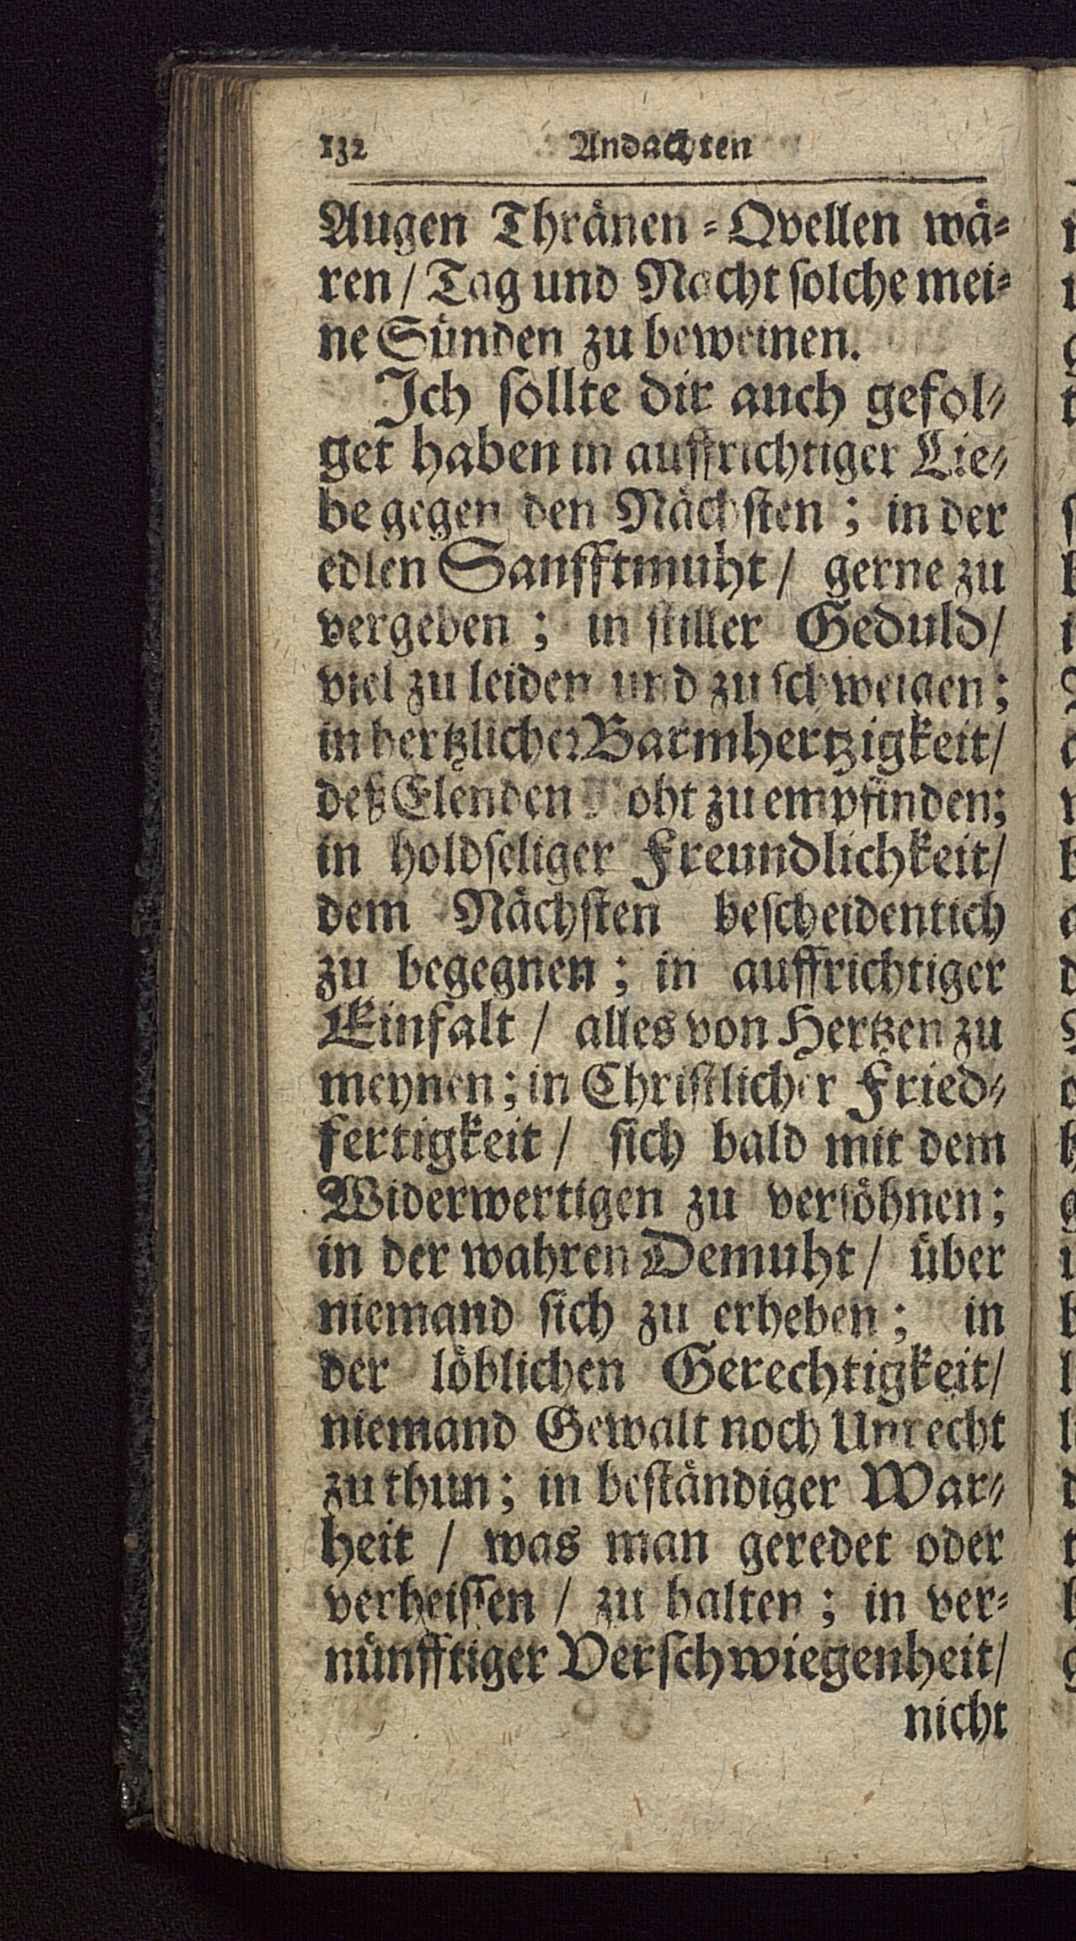 132 Andachten
Augen Thränen-Qvellen wä-
ren / Tag und Nacht solche mei-
ne Sünden zu beweinen.
Ich sollte dir auch gefol-
get haben in auffrichtiger Lie-
be gegen den Nächsten ; in der
edlen Sanfftmuht / gerne zu
vergeben ; in stiller Geduld /
viel zu leiden und zu schweigen ;
in hertzlicher Barmhertzigkeit /
deß Elenden zu empfinden ;
in holdseliger Freundlichkeit /
dem Nächsten bescheidentich
zu begegnen ; in auffrichtiger
Einfalt / alles von Hertzen zu
meynen ; in Christlicher Fried-
fertigkeit / sich bald mit dem
Widerwertigen zu versöhnen ;
in der wahren Demuht / über
niemand sich zu erheben ; in
der löblichen Gerechtigkeit /
niemand Gewalt noch Unrecht
zu thun ; in beständiger War-
heit / was man geredet oder
verheissen / zu halten ; in ver-
nünfftiger Verschwiegenheit /
nicht